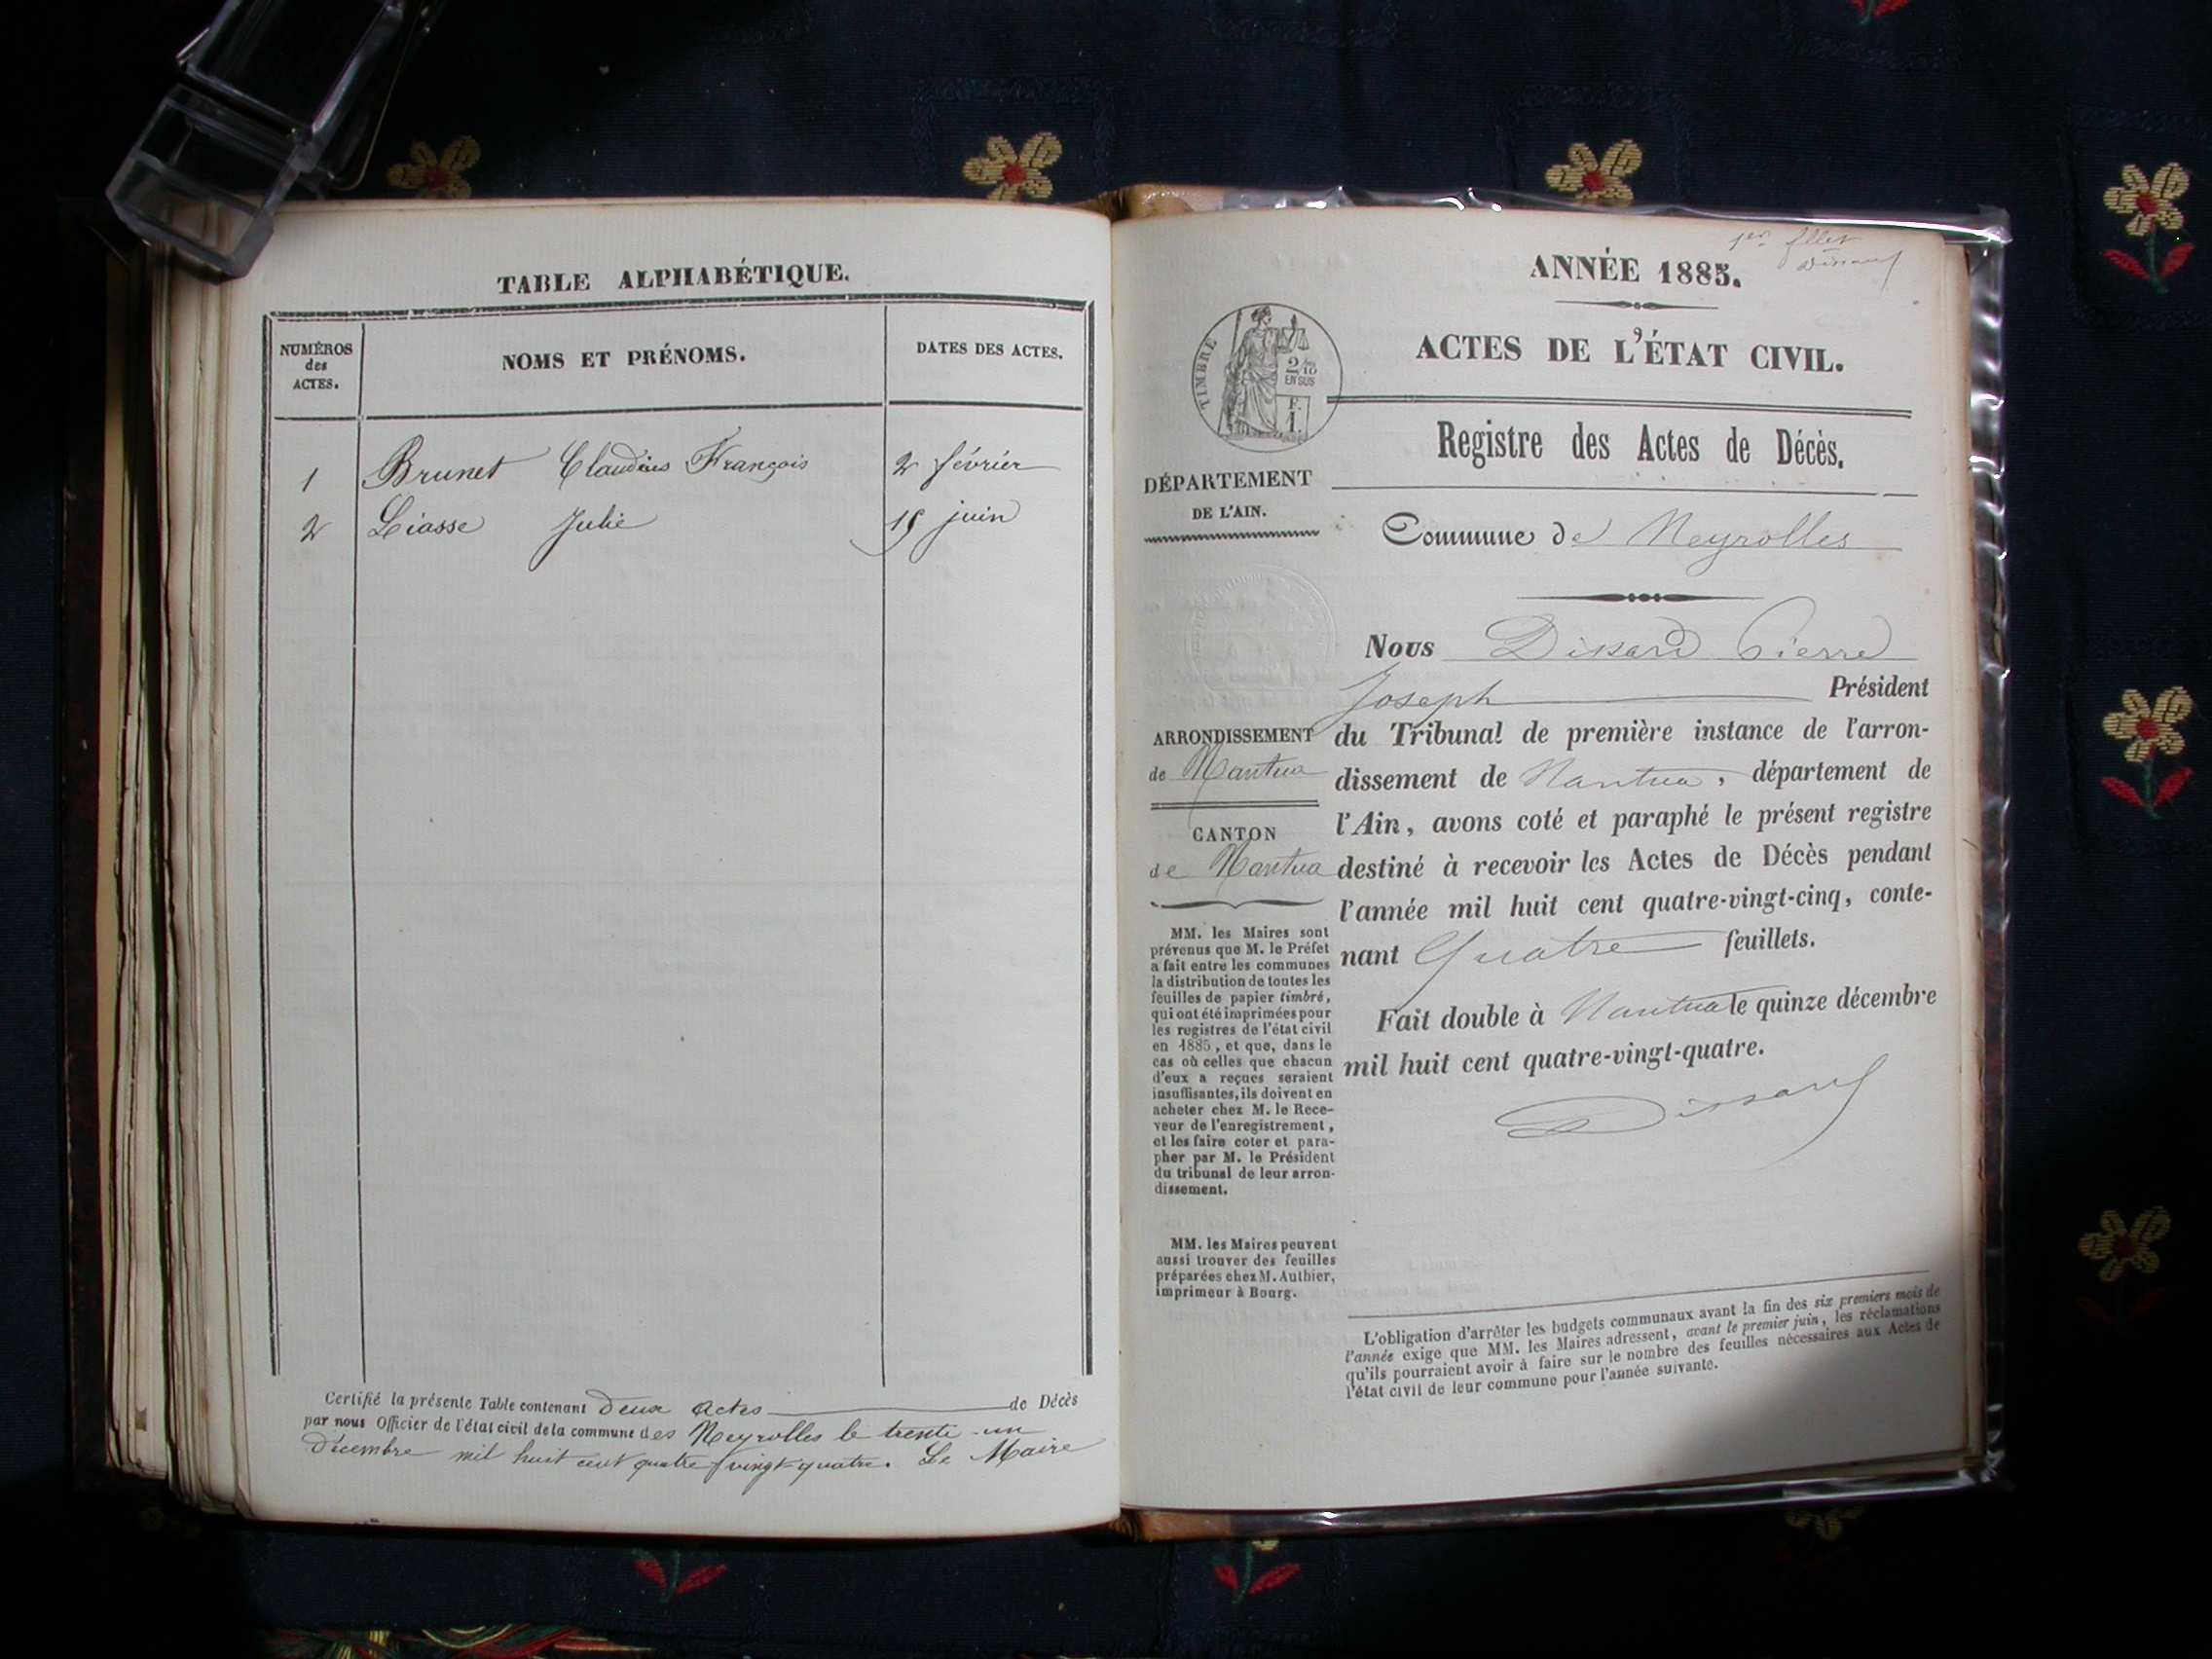 TABLE ALPHABÉTIQUE.
NUMÉROS
des
ACTES.
NOMS ET PRÉNOMS.
DATES DES ACTES.
1 Brunet Claudius François 2 février
2 Liasse Julie 15 juin
Certifié la présente Table contenant deux actes de Décès
par nous Officier de l'état civil de la commune des Neyrolles le trente-un
décembre mil huit cent quatre vingt-quatre. Le Maire
1er fllet
Dissard
ANNÉE 1885.
ACTES DE L'ÉTAT CIVIL.
TIMBRE
2/10
EN SUS
F.
1.
Registre des Actes de Décès.
DÉPARTEMENT
DE L'AIN.
Commune de Neyrolles
Nous Dissard Pierre
Joseph Président
ARRONDISSEMENT
de Nantua
CANTON
de Nantua
du Tribunal de première instance de l'arron-
dissement de Nantua, département de
l'Ain, avons coté et paraphé le présent registre
destiné à recevoir les Actes de Décès pendant
l'année mil huit cent quatre-vingt-cinq, conte-
nant Quatre feuillets.
Fait double à Nantua le quinze décembre
mil huit cent quatre-vingt-quatre.
Dissard
MM. les Maires sont
prévenus que M. le Préfet
a fait entre les communes
la distribution de toutes les
feuilles de papier timbré,
qui ont été imprimées pour
les registres de l'état civil
en 1885, et que, dans le
cas où celles que chacun
d'eux a reçues seraient
insuffisantes, ils doivent en
acheter chez M. le Rece-
veur de l'enregistrement,
et les faire coter et para-
pher par M. le Président
du tribunal de leur arron-
dissement.
MM. les Maires peuvent
aussi trouver des feuilles
préparées chez M. Authier,
imprimeur à Bourg.
L'obligation d'arrêter les budgets communaux avant la fin des six premiers mois de
l'année exige que MM. les Maires adressent, avant le premier juin, les réclamations
qu'ils pourraient avoir à faire sur le nombre des feuilles nécessaires aux Actes de
l'état civil de leur commune pour l'année suivante.